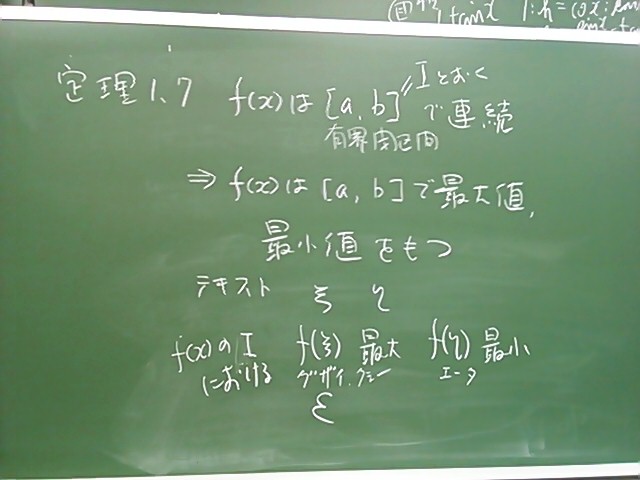 tan x
定理1.7 f(x)は[a, b]で連続
"Iとおく
有界閉区間
⇒ f(x)は[a, b]で最大値,
最小値をもつ
テキスト ξ η
f(x)のI f(ξ)最大 f(η)最小
における グザイ,クシー エータ
ξ